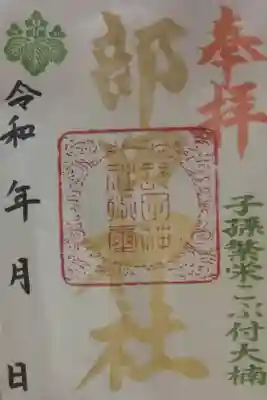 奉拝
子孫繁栄こぶ付大楠
部 社
令和 年 月 日